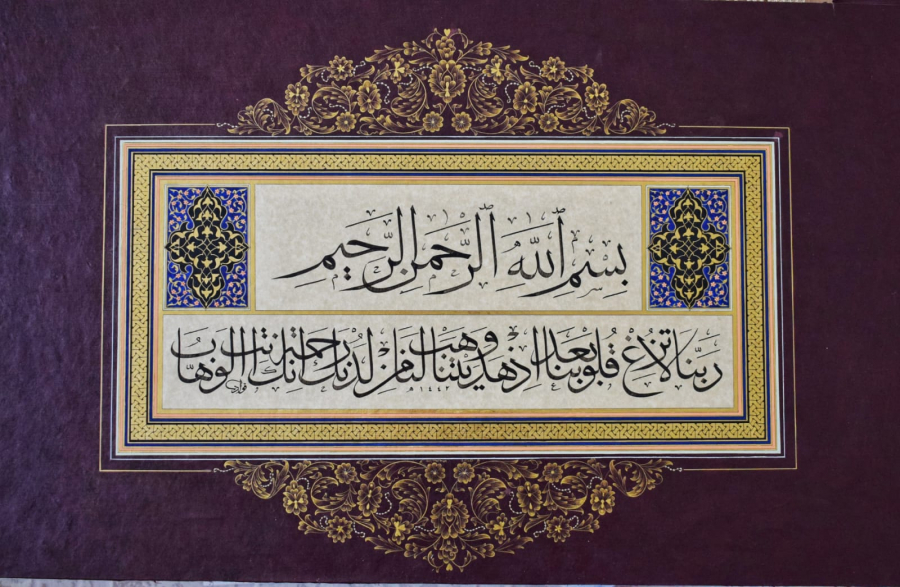 بِسْمِ اللَّهِ الرَّحْمَنِ الرَّحِيمِ
رَبَّنَا لَا تُزِغْ قُلُوبَنَا بَعْدَ إِذْ هَدَيْتَنَا وَهَبْ لَنَا مِنْ لَدُنْكَ رَحْمَةً إِنَّكَ أَنْتَ الْوَهَّابُ
١٤٤٢هـ